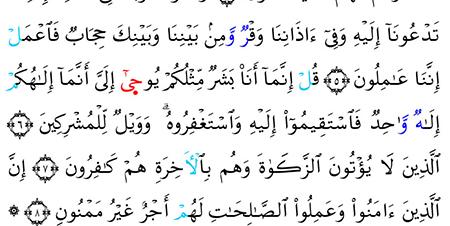 تَدْعُونَآ إِلَيْهِ وَفِىٓ ءَاذَانِنَا وَقْرٌ وَمِنۢ بَيْنِنَا وَبَيْنِكَ حِجَابٌ فَٱعْمَلْ
إِنَّنَا عَـٰمِلُونَ ﴿٥﴾ قُلْ إِنَّمَآ أَنَا۠ بَشَرٌ مِّثْلُكُمْ يُوحَىٰٓ إِلَىَّ أَنَّمَآ إِلَـٰهُكُمْ
إِلَـٰهٌ وَٰحِدٌ فَٱسْتَقِيمُوٓا۟ إِلَيْهِ وَٱسْتَغْفِرُوهُ ۗ وَوَيْلٌ لِّلْمُشْرِكِينَ ﴿٦﴾
ٱلَّذِينَ لَا يُؤْتُونَ ٱلزَّكَوٰةَ وَهُم بِٱلْـَٔاخِرَةِ هُمْ كَـٰفِرُونَ ﴿٧﴾ إِنَّ
ٱلَّذِينَ ءَامَنُوا۟ وَعَمِلُوا۟ ٱلصَّـٰلِحَـٰتِ لَهُمْ أَجْرٌ غَيْرُ مَمْنُونٍ ﴿٨﴾ ۞